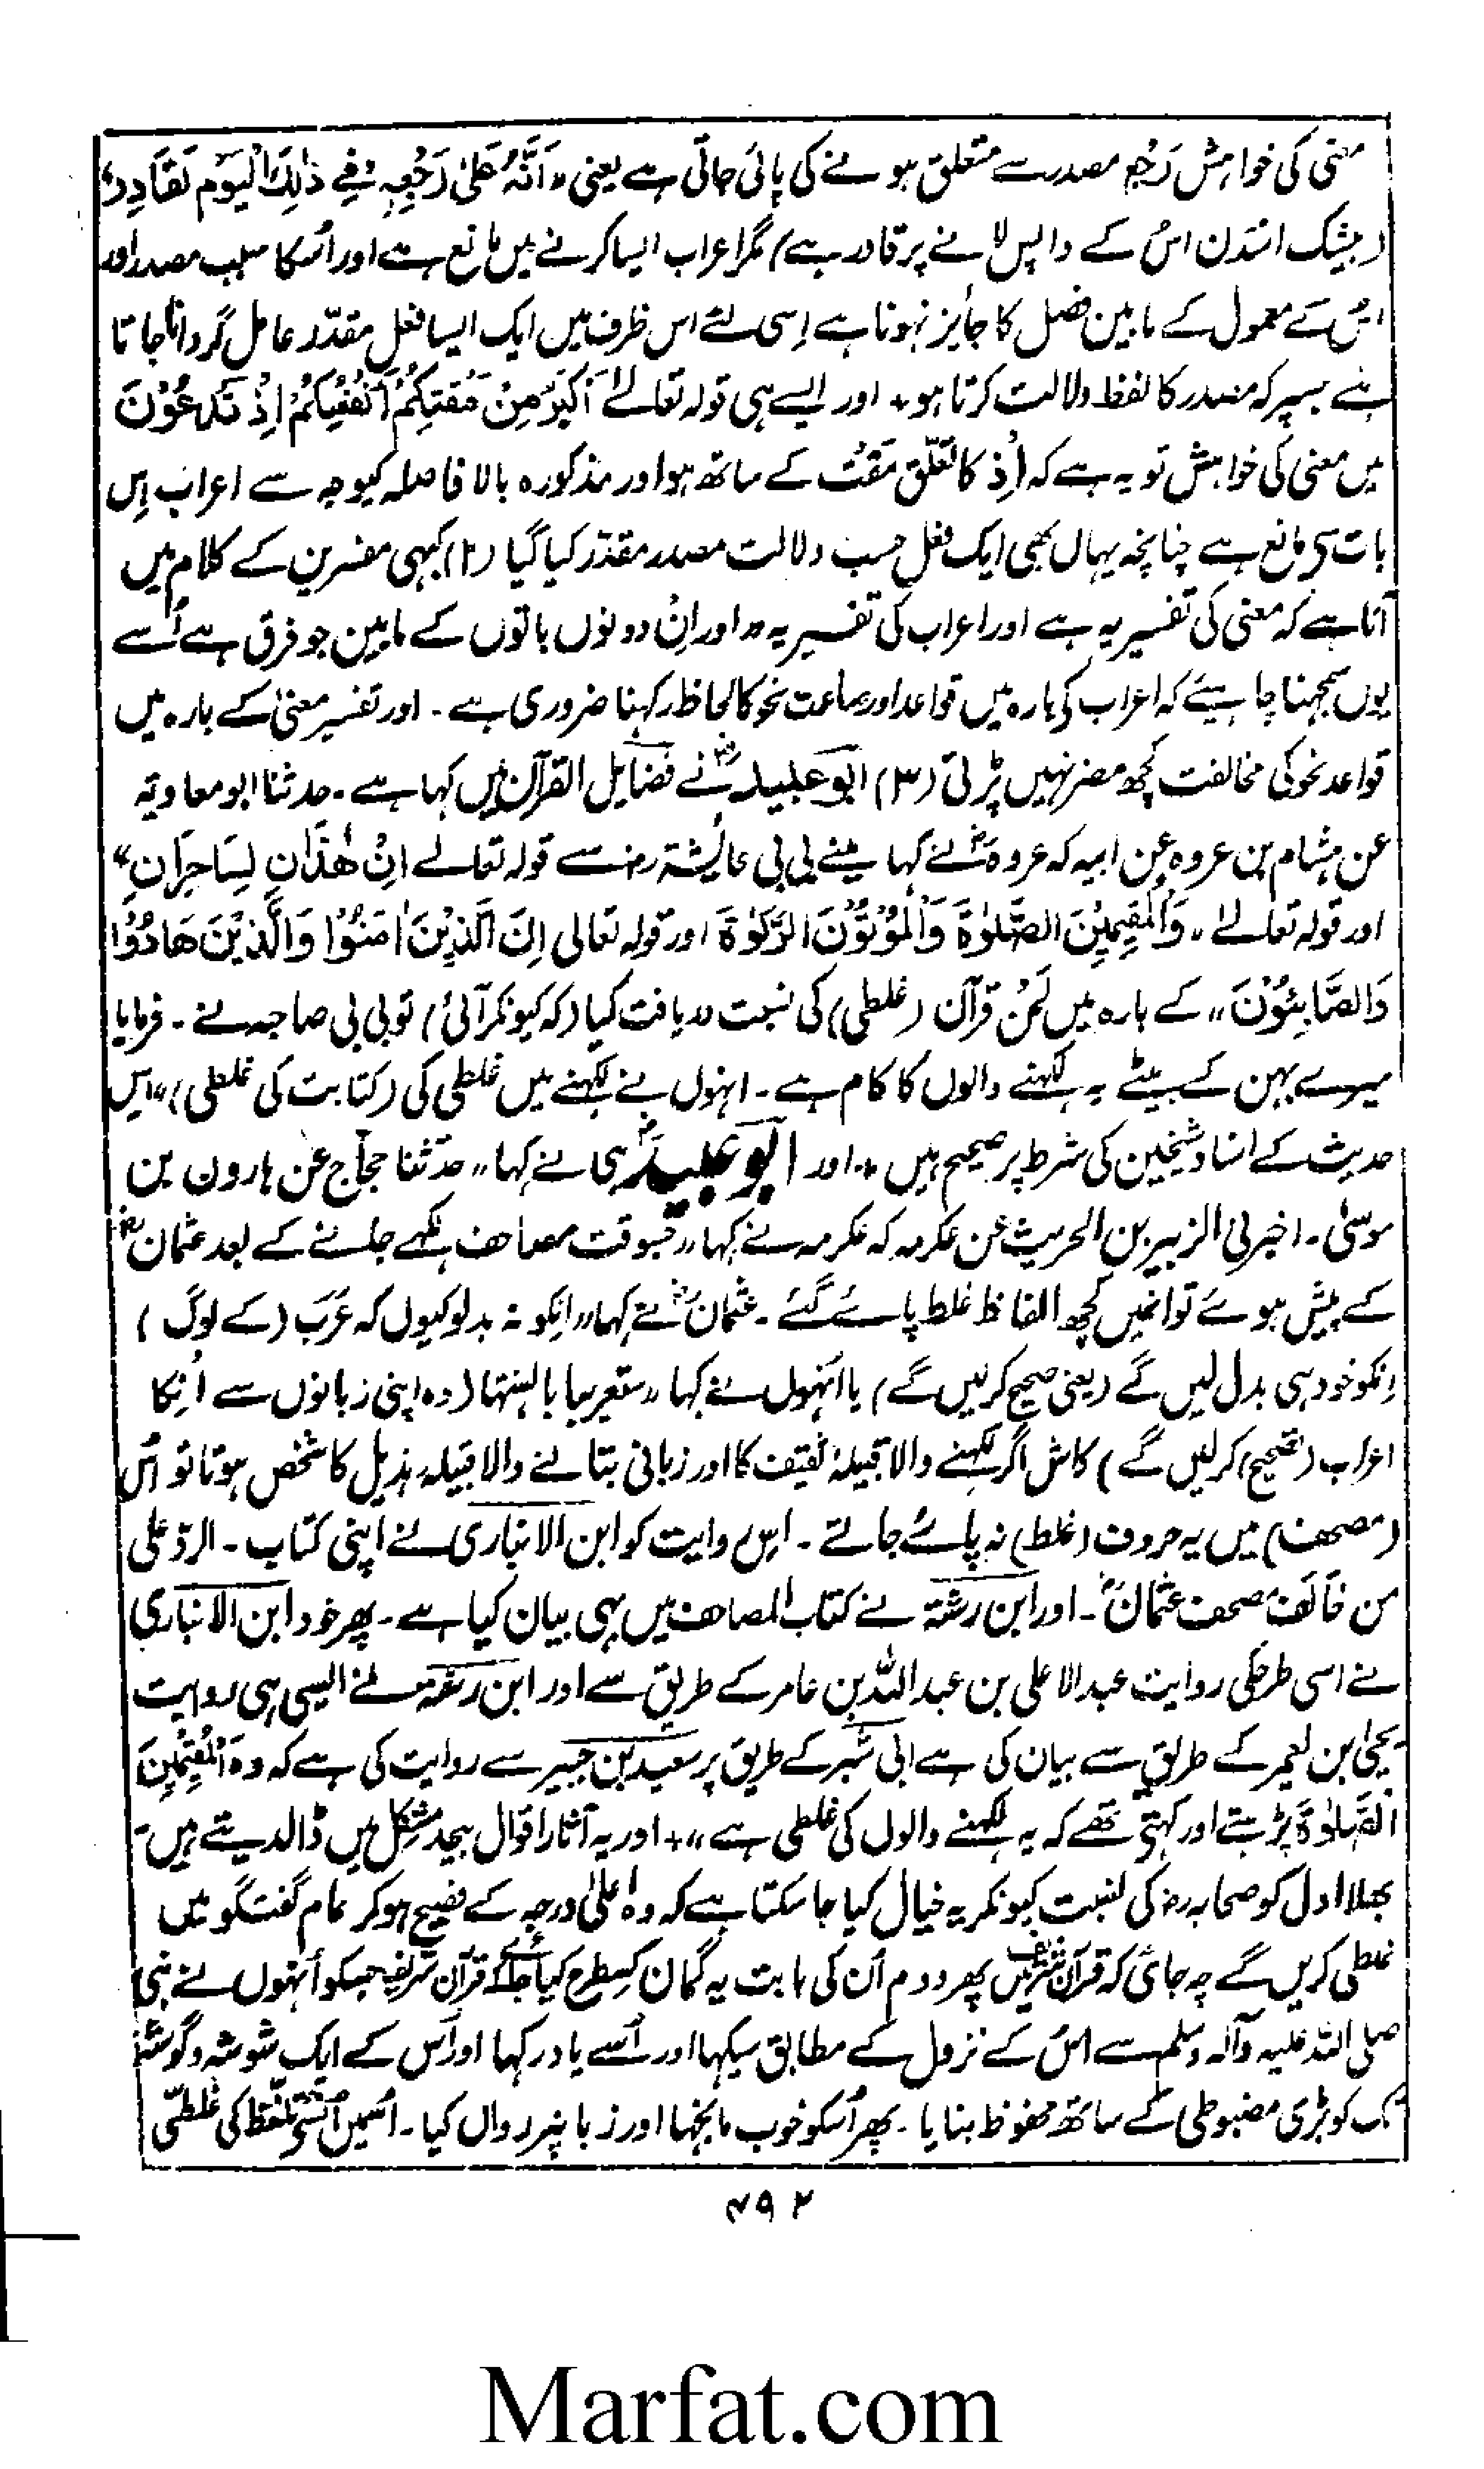 معنی کی خواہش رَجْع مصدر سے متعلق ہونے کی پائی جاتی ہے یعنی "اَنَّہٗ عَلیٰ رَجْعِہٖ فِے ذٰلِکَ الْیَوْم لَقَادِرٌ"
(بیشک اسدن اُس کے واپس لانے پر قادر ہے) مگر اعراب ایسا کرنے میں مانع ہے اور اُسکا سبب مصدر اور
اُس کے معمول کے مابین فصل کا جایز نہونا ہے اِسی لئے اس ظرف میں ایک ایسا فعل مقدّر عامل گردانا جاتا
ہے جسپر کہ مصدر کا لفظ دلالت کرتا ہو + اور ایسے ہی قولہ تعالےٰ اَکْبَرُ مِنْ مَقْتِکُمْ اَنْفُسَکُمْ اِذْ تُدْعَوْنَ
میں معنی کی خواہش تو یہ ہے کہ اِذ کا تعلّق مَقْت کے ساتھ ہو اور مذکورہ بالا فاصلہ کیوجہ سے اعراب اِس
بات سی مانع ہے چنانچہ یہاں بھی ایک فعل حسب دلالت مصدر مقدّر کیا گیا (۲) کبہی مفسرین کے کلام میں
آتا ہے کہ معنی کی تفسیر یہ ہے اور اعراب کی تفسیر یہ" اور اِن دونوں باتوں کے مابین جو فرق ہے اُسے
یوں سمجہنا چاہیئے کہ اعراب کی بارہ میں قواعد اور صناعت نحو کا لحاظ رکہنا ضروری ہے ۔ اور تفسیر معنیٰ کے بارہ میں
قواعد نحو کی مخالفت کچھ مضر نہیں پڑتی (۳) ابو عبیدؒ نے فضایل القرآن میں کہا ہے ۔ حدثنا ابو معاویہ
عن ہشام بن عروہ عن ابیہ کہ عروہؓ نے کہا مینے بی بی عائیشہ رض سے قولہ تعالےٰ اِنْ ھٰذَانِ لَسَاحِرَانِ"
اور قولہ تعالےٰ " وَالْمُقِیْمِیْنَ الصَّلٰوۃَ وَالْمُؤْتُوْنَ الزَّکٰوۃَ اور قولہ تعالی اِنَّ الَّذِیْنَ اٰمَنُوْا وَالَّذِیْنَ ھَادُوْا
وَالصَّابِئُوْنَ" کے بارہ میں لَحْن قرآن (غلطی) کی نسبت دریافت کیا (کہ کیونکر آئی) تو بی بی صاحبہ نے ۔ فرمایا
میرے بہن کے بیٹے یہ لکہنے والوں کا کام ہے ۔ انہوں نے لکہنے میں غلطی کی (کتابت کی غلطی)" اس
حدیث کے اسناد شیخین کی شرط پر صحیح ہیں + اور ابو عبیدؒ ہی نے کہا "حدّثنا حجاّج عن ہارون بن
موسیٰ ۔ اخبرنی الزبیر بن الحریث عن عکرمہ کہ عکرمہ نے کہا "جسوقت مصاحف لکہے جانے کے بعد عثمانؓ
کے پیش ہوئے تو انمیں کچھ الفاظ غلط پائے گئے ۔ عثمانؓ نے کہا "انکو نہ بدلو کیوں کہ عَرَب (کے لوگ)
اِنکو خود ہی بدل لیں گے (یعنی صحیح کرلیں گے) یا انہوں نے کہا "ستعربہا بالسنتہا (وہ اپنی زبانوں سے اُنکا
اعراب (تصحیح) کرلیں گے) کاش اگر لکہنے والا قبیلۂ ثقیف کا اور زبانی بتانے والا قبیلہ ہذیل کا شخص ہوتا تو اُس
(مصحف) میں یہ حروف (غلط) نہ پائے جاتے ۔ اِس روایت کو ابن الانباری نے اپنی کتاب ۔ الردّ علی
من خَالَفَ مصحف عثمانؓ ۔ اور ابن رشتۃ نے کتاب المصاحف میں بہی بیان کیا ہے ۔ پھر خود ابن الانباری
نے اسی طرحکی روایت عبدالاعلی بن عبداللہ بن عامر کے طریق سے اور ابن رشتۃ نے ایسی ہی روایت
یحییٰ بن یعمر کے طریق سے بیان کی ہے ابی بشر کے طریق پر سعید بن جبیر سے روایت کی ہے کہ وہ اَلْمُقِیْمِیْنَ
الصَّلٰوۃَ پڑہتے اور کہتے تھے کہ یہ لکہنے والوں کی غلطی ہے" + اور یہ آثار اقوال بیحد مشکل میں ڈالدیتے ہیں ۔
بھلا اول کو صحابہ رض کی نسبت کیونکر یہ خیال کیا جا سکتا ہے کہ وہ اعلیٰ درجہ کے فصیح ہوکر عام گفتگو میں
غلطی کریں گے چہ جائی کہ قرآن شریف میں پھر دوم اُن کی بابت یہ گمان کسطرح کیا جائے کہ قرآن شریف جسکو اُنہوں نے نبی
صلی اللہ علیہ وآلہ وسلم سے اُس کے نزول کے مطابق سیکہا اور اُسے یاد رکہا اور اُس کے ایک شوشہ و گوشہ
تک کو بڑی مضبوطی کے ساتھ محفوظ بنایا ۔ پھر اُسکو خوب مانجہا اور زبانپر رواں کیا ۔ اُسمیں اُنسے تلفظ کی غلطی
۴۹۲
Marfat.com